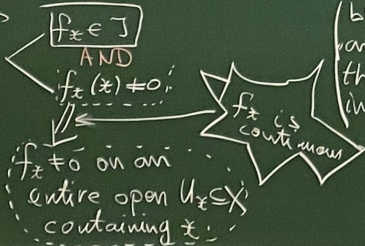 f_x ∈ J
AND
f_x (x) ≠ 0
f_x is
continuous
f_x ≠ 0 on an
entire open U_x ⊆ X
containing x.